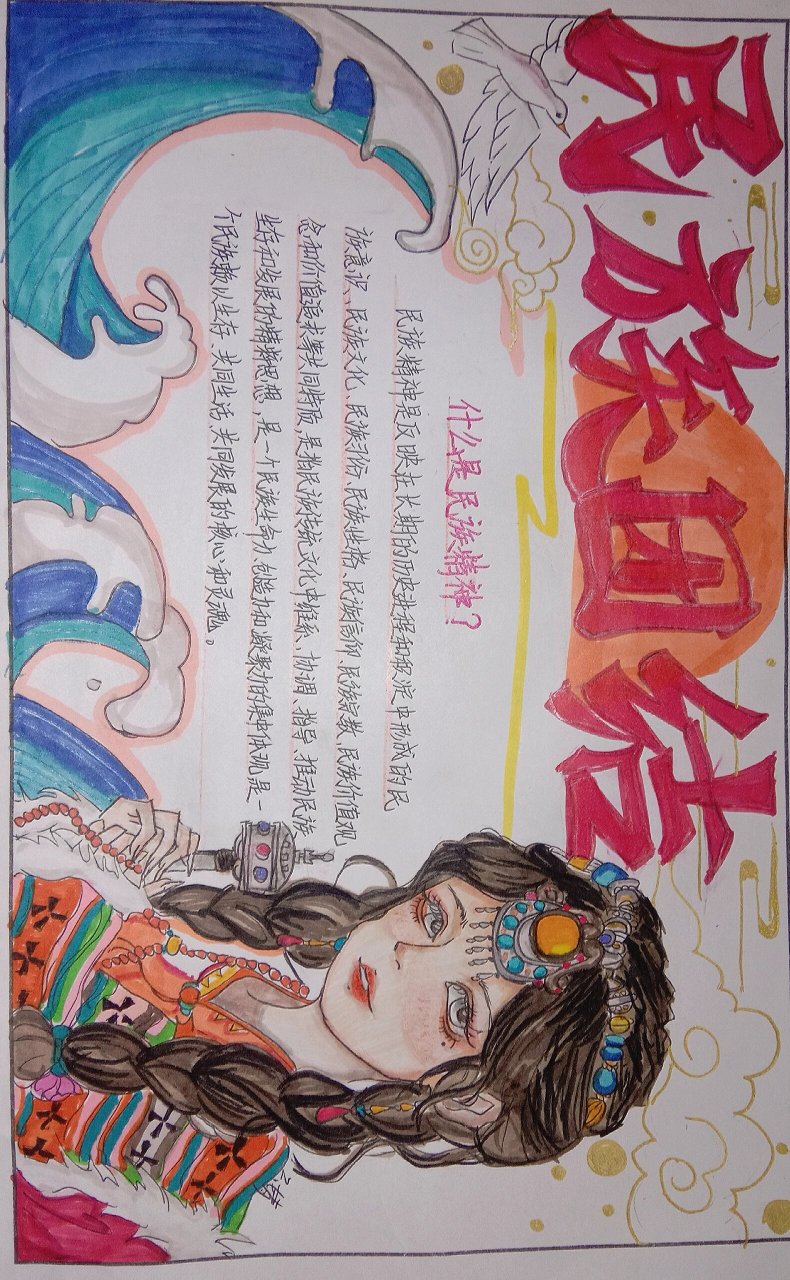 民族团结
什么是民族精神？
民族精神是反映在长期的历史进程和积淀中形成的民
族意识、民族文化、民族习俗、民族性格、民族信仰、民族宗教、民族价值观
念和价值追求等共同特质，是指民族传统文化中维系、协调、指导、推动民族
生存和发展的精粹思想，是一个民族生命力、创造力和凝聚力的集中体现，是一
个民族赖以生存、共同生活、共同发展的核心和灵魂。